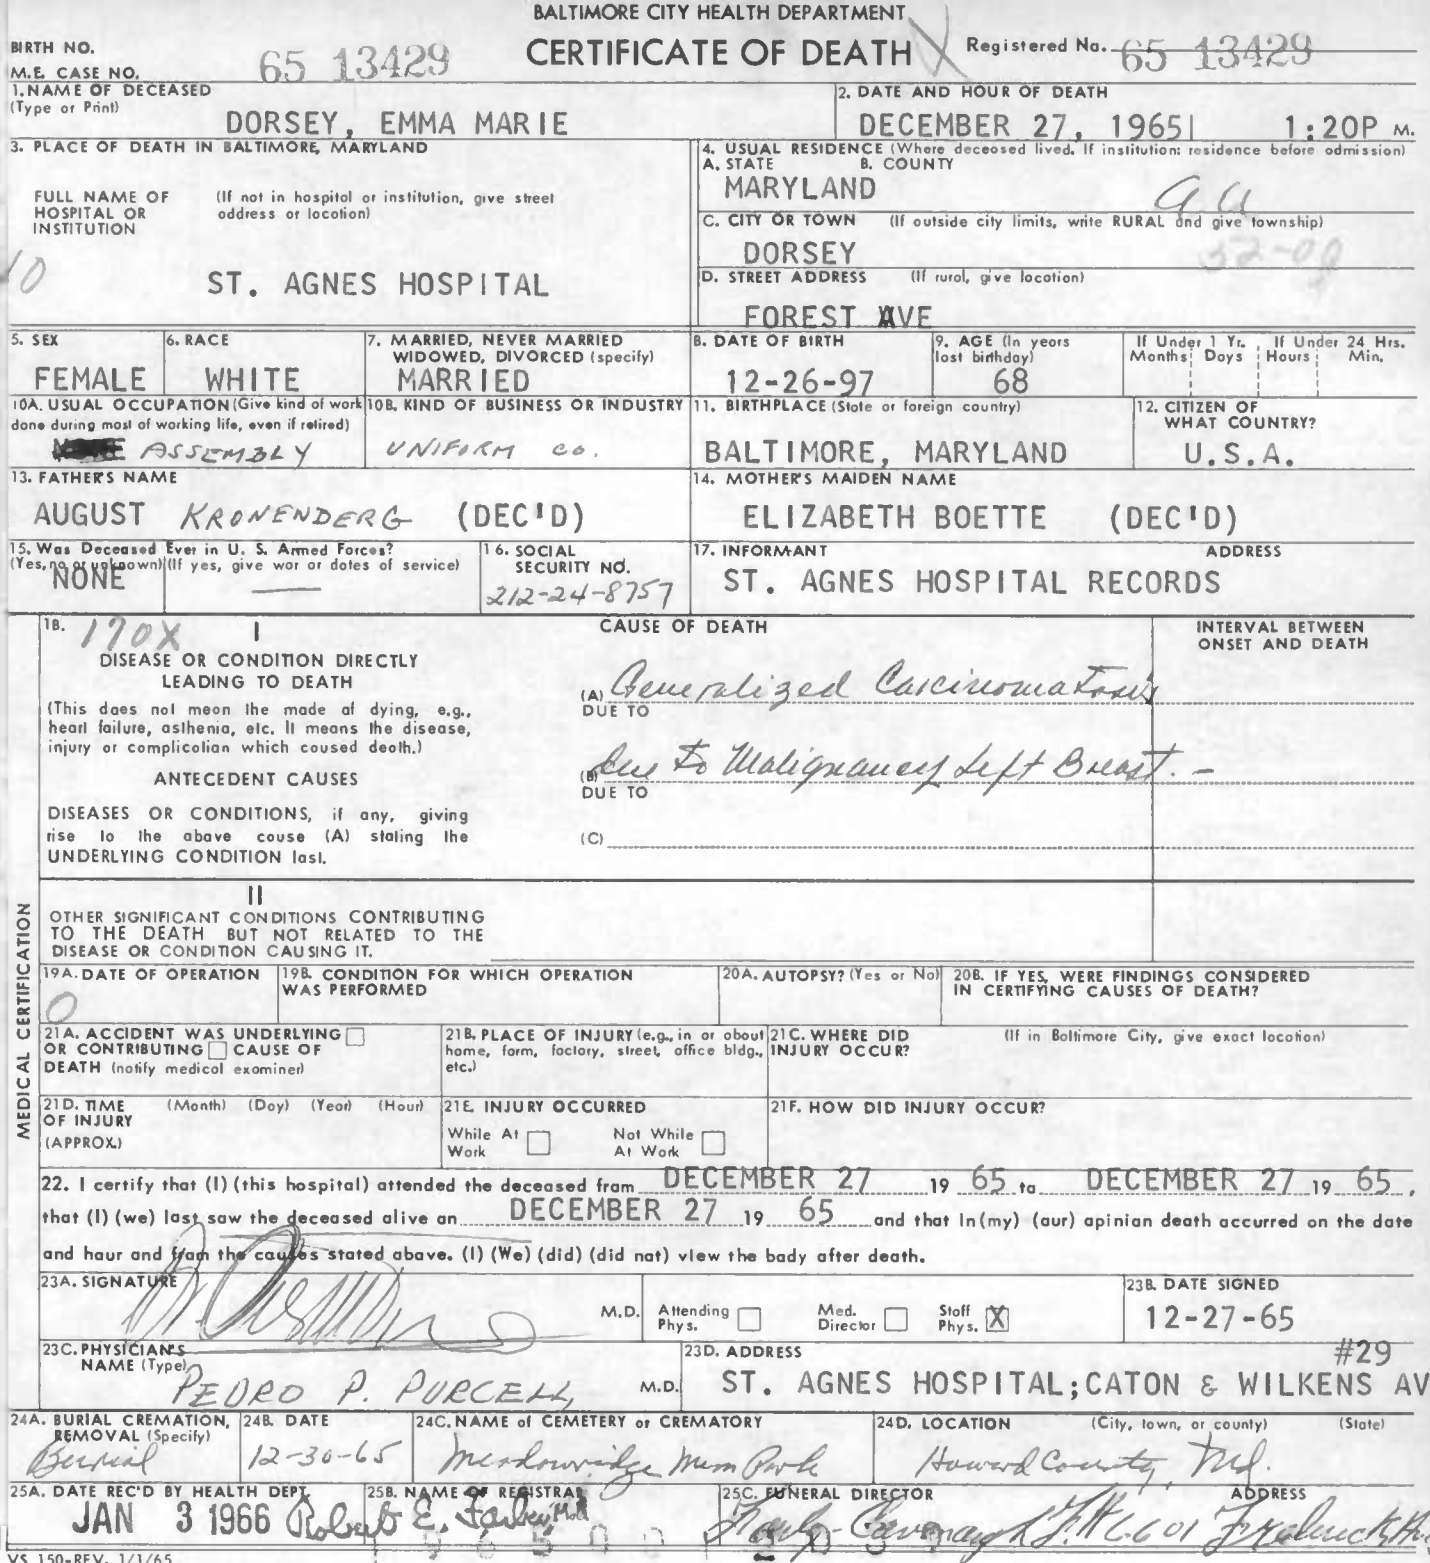 BALTIMORE CITY HEALTH DEPARTMENT
CERTIFICATE OF DEATH
BIRTH NO.
M.E. CASE NO.
65 13429
Registered No. 65 13429
1. NAME OF DECEASED
(Type or Print)
DORSEY, EMMA MARIE
2. DATE AND HOUR OF DEATH
DECEMBER 27, 1965 1:20P M.
3. PLACE OF DEATH IN BALTIMORE, MARYLAND
FULL NAME OF HOSPITAL OR INSTITUTION
(If not in hospital or institution, give street address or location)
10
ST. AGNES HOSPITAL
4. USUAL RESIDENCE (Where deceased lived. If institution: residence before admission)
A. STATE B. COUNTY
MARYLAND
C. CITY OR TOWN (If outside city limits, write RURAL and give township)
DORSEY
52-00
D. STREET ADDRESS (If rural, give location)
FOREST AVE
5. SEX
FEMALE
6. RACE
WHITE
7. MARRIED, NEVER MARRIED
WIDOWED, DIVORCED (specify)
MARRIED
8. DATE OF BIRTH
12-26-97
9. AGE (In years
last birthday)
68
If Under 1 Yr.
Months Days
If Under 24 Hrs.
Hours Min.
10A. USUAL OCCUPATION (Give kind of work
done during most of working life, even if retired)
ASSEMBLY
10B. KIND OF BUSINESS OR INDUSTRY
UNIFORM CO.
11. BIRTHPLACE (State or foreign country)
BALTIMORE, MARYLAND
12. CITIZEN OF
WHAT COUNTRY?
U.S.A.
13. FATHER'S NAME
AUGUST KRONENDERG (DEC'D)
14. MOTHER'S MAIDEN NAME
ELIZABETH BOETTE (DEC'D)
15. Was Deceased Ever in U. S. Armed Forces?
(Yes, no or unknown) (If yes, give war or dates of service)
NONE
16. SOCIAL
SECURITY NO.
212-24-8757
17. INFORMANT ADDRESS
ST. AGNES HOSPITAL RECORDS
18. 170X I
DISEASE OR CONDITION DIRECTLY
LEADING TO DEATH
(This does not mean the mode of dying, e.g.,
heart failure, asthenia, etc. It means the disease,
injury or complication which caused death.)
ANTECEDENT CAUSES
DISEASES OR CONDITIONS, if any, giving
rise to the above cause (A) stating the
UNDERLYING CONDITION last.
CAUSE OF DEATH
INTERVAL BETWEEN
ONSET AND DEATH
(A) Generalized Carcinomatosis
DUE TO
(B) due to Malignancy Left Breast. -
DUE TO
(C)
II
OTHER SIGNIFICANT CONDITIONS CONTRIBUTING
TO THE DEATH BUT NOT RELATED TO THE
DISEASE OR CONDITION CAUSING IT.
MEDICAL CERTIFICATION
19A. DATE OF OPERATION
0
19B. CONDITION FOR WHICH OPERATION
WAS PERFORMED
20A. AUTOPSY? (Yes or No)
20B. IF YES, WERE FINDINGS CONSIDERED
IN CERTIFYING CAUSES OF DEATH?
21A. ACCIDENT WAS UNDERLYING
OR CONTRIBUTING CAUSE OF
DEATH (notify medical examiner)
21B. PLACE OF INJURY (e.g., in or about
home, farm, factory, street, office bldg.,
etc.)
21C. WHERE DID
INJURY OCCUR?
(If in Baltimore City, give exact location)
21D. TIME
OF INJURY
(APPROX.)
(Month) (Day) (Year) (Hour)
21E. INJURY OCCURRED
While At
Work
Not While
At Work
21F. HOW DID INJURY OCCUR?
22. I certify that (I) (this hospital) attended the deceased from DECEMBER 27 19 65 to DECEMBER 27 19 65,
that (I) (we) last saw the deceased alive on DECEMBER 27 19 65 and that in (my) (our) opinion death occurred on the date
and hour and from the causes stated above. (I) (We) (did) (did not) view the body after death.
23A. SIGNATURE
M.D.
Attending
Phys.
Med.
Director
Staff
Phys. X
23B. DATE SIGNED
12-27-65
23C. PHYSICIAN'S
NAME (Type)
PEDRO P. PURCELL, M.D.
23D. ADDRESS
#29
ST. AGNES HOSPITAL; CATON & WILKENS AV
24A. BURIAL CREMATION,
REMOVAL (Specify)
Burial
24B. DATE
12-30-65
24C. NAME of CEMETERY or CREMATORY
Meadowridge Mem Park
24D. LOCATION (City, town, or county) (State)
Howard County, Md.
25A. DATE REC'D BY HEALTH DEPT.
JAN 3 1966
25B. NAME OF REGISTRAR
Robert E. Farber, M.D.
25C. FUNERAL DIRECTOR ADDRESS
Cavenaugh F.H 6601 Frederick
VS 150-REV. 1/1/65